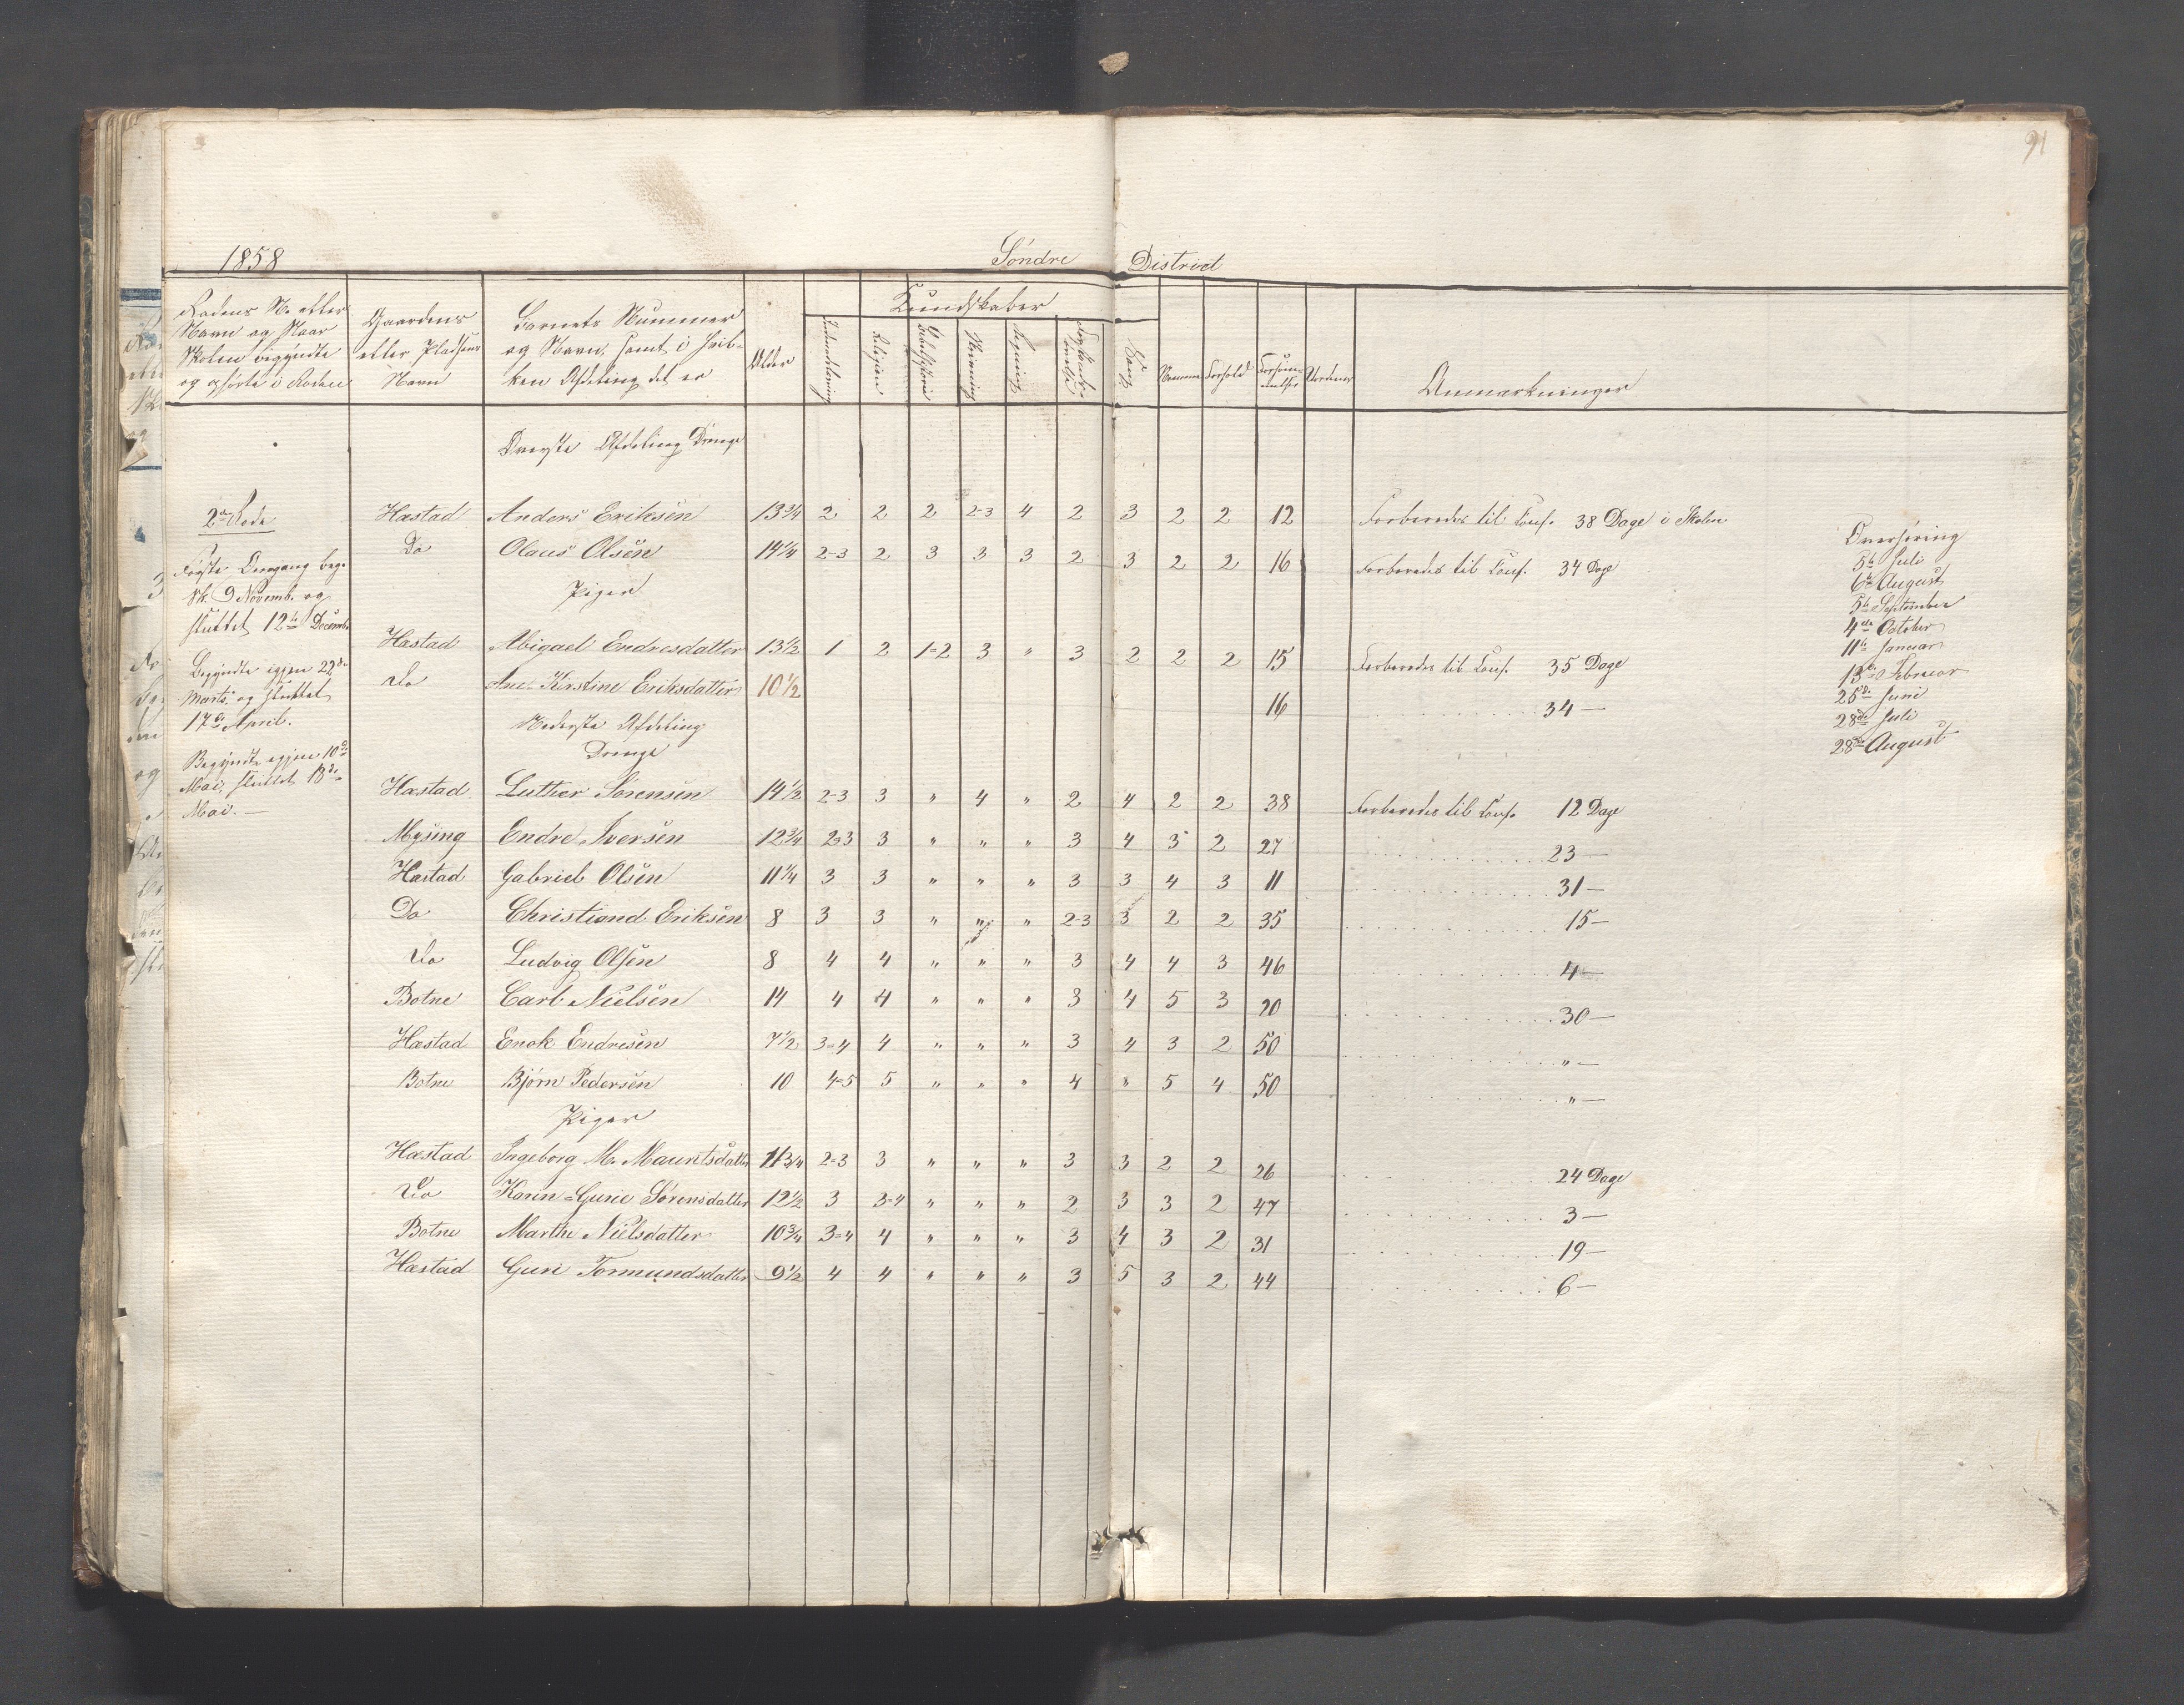 91
1858 Søndre District
Rodens No eller
Navn og Naar
Skolen begyndte
og ophørte i Roden
Gaardens
eller Pladsens
Navn
Barnets Nummer
og Navn, samt i hvil-
ken Afdeling det er
Alder
Kundskaber
Indenadlæsning
Religion
Bibelhistorie
Skrivning
Regning
Forstands-
øvelse
Sang
Nemme
Forhold
Forsøm-
melser
Anmærkninger
Øverste Afdeling Drenge
2den Rode
Første Omgang beg.
Sk. 9 Novemb. og
sluttet 12te Decemb.
Begyndte igjen 22de
Marts og sluttet
17de April.
Begyndte igjen 10de
Mai, sluttet 18de
Mai. —
Hæstad Anders Eriksen 13 3/4 2 2 2 2-3 4 2 3 2 2 12 Forberedes til Conf. 38 Dage i Skolen
Do Olaus Olsen 14 1/4 2-3 2 3 3 3 2 3 2 2 16 Forberedes til Conf. 34 Dage
Piger
Hæstad Abigael Endresdatter 13 1/2 1 2 1-2 3 " 3 2 2 2 15 Forberedes til Conf. 35 Dage
Do Ane Kirstine Eriksdatter 10 1/2 16 34 —
Nederste Afdeling
Drenge
Hæstad Luther Sørensen 14 1/2 2-3 3 " 4 " 2 4 2 2 38 Forberedes til Conf. 12 Dage
Mysing Endre Iversen 12 3/4 2=3 3 " " " 3 4 3 2 27 23 —
Hæstad Gabriel Olsen 11 1/4 3 3 " " " 3 3 4 3 11 31 —
Do Christiand Eriksen 8 3 3 " " " 2-3 3 2 2 35 15 —
Do Ludvig Olsen 8 4 4 " " " 3 4 4 3 46 4 —
Botne Carl Nielsen 14 4 4 " " " 3 4 5 3 20 30 —
Hæstad Enok Endresen 7 1/2 3=4 4 " " " 3 4 3 2 50 " —
Botne Bjørn Pedersen 10 4=5 5 " " " 4 " 5 4 50 " —
Piger
Hæstad Ingeborg M. Mauritsdatter 11 3/4 2=3 3 " " " 3 3 2 2 26 24 Dage
Do Karen=Gurie Sørensdatter 12 1/2 3 3-4 " " " 2 3 3 2 47 3 —
Botne Marthe Nielsdatter 10 3/4 3=4 4 " " " 3 4 3 2 31 19 —
Hæstad Guri Tormundsdatter 9 1/2 4 4 " " " 3 5 3 2 44 6 —
Overhøring
5te Juli
6te August
5te September
4de October
11te Januar
13de Februar
25de Juni
28de Juli
28de August